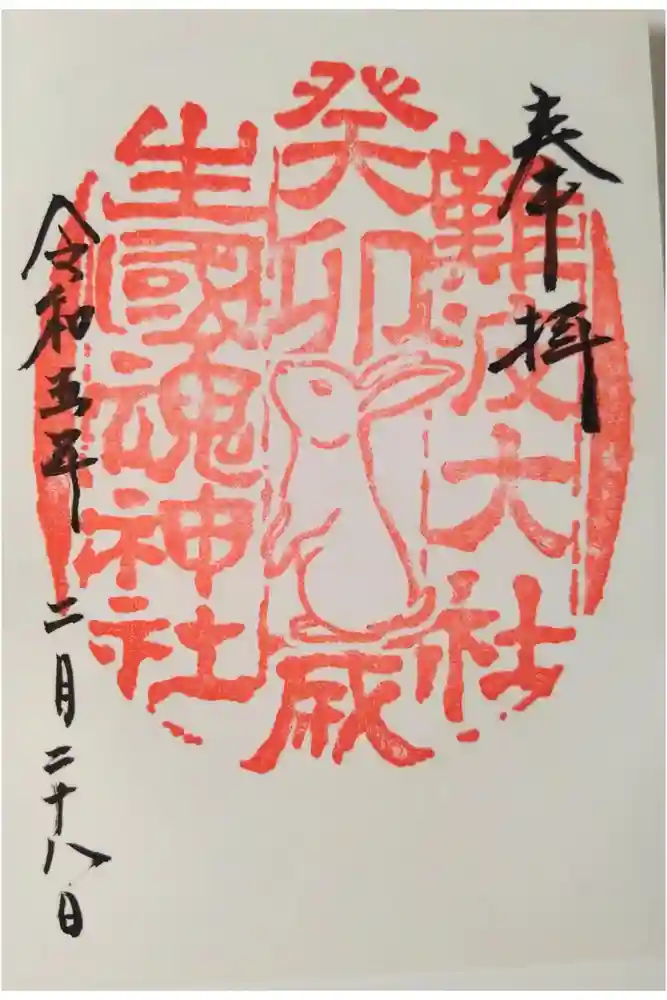 奉拝
難波大社
癸卯歳
生國魂神社
令和五年二月二十八日